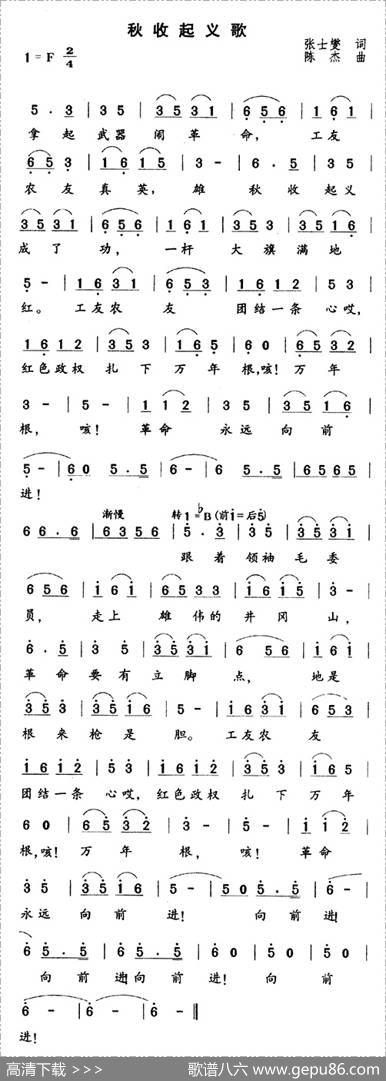 秋收起义歌
1=F 2/4
张士燮 词
陈杰 曲
5·3 | 35 | 3531 | 656 | 161 |
拿起武器闹革命,工友
653 | 1615 | 3- | 6·5 | 35 |
农友真英,雄秋收起义
3531 | 656 | 161 | 353 | 313 |
成了功,一杆大旗满地
5- | 1631 | 653 | 1612 | 53 |
红。工友农友团结一条心哎,
1612 | 353 | 165 | 60 | 6532 |
红色政权扎下万年根,咳!万年
3- | 5- | 112 | 35 | 3516 |
根,咳!革命永远向前
5- | 60 5·5 | 6- | 6 5·5 | 6565 |
进!
渐慢 转1=♭B(前i=后5)
66·6 | 6356 | 5·3 | 35 | 3531 |
跟着领袖毛委
656 | 161 | 31 | 353 | 1615 | 3- |
员,走上雄伟的井冈山,
6·5 | 35 | 353 | 656 | 161 |
革命要有立脚点,地是
353 | 3516 | 5- | 1631 | 653 |
根来枪是胆。工友农友
1612 | 53 | 1612 | 353 | 165 |
团结一条心哎,红色政权扎下万年
60 | 6532 | 3- | 5- | 112 |
根,咳!万年根,咳!革命
35 | 3516 | 5- | 505·5 | 6- |
永远向前进!向前进!
65·5 | 65·5 | 60 | 50 | 50 |
向前进!向前进!向前
6- | 6- | 6- ‖
进!
高清下载 >>>
歌谱八六 www.gepu86.com